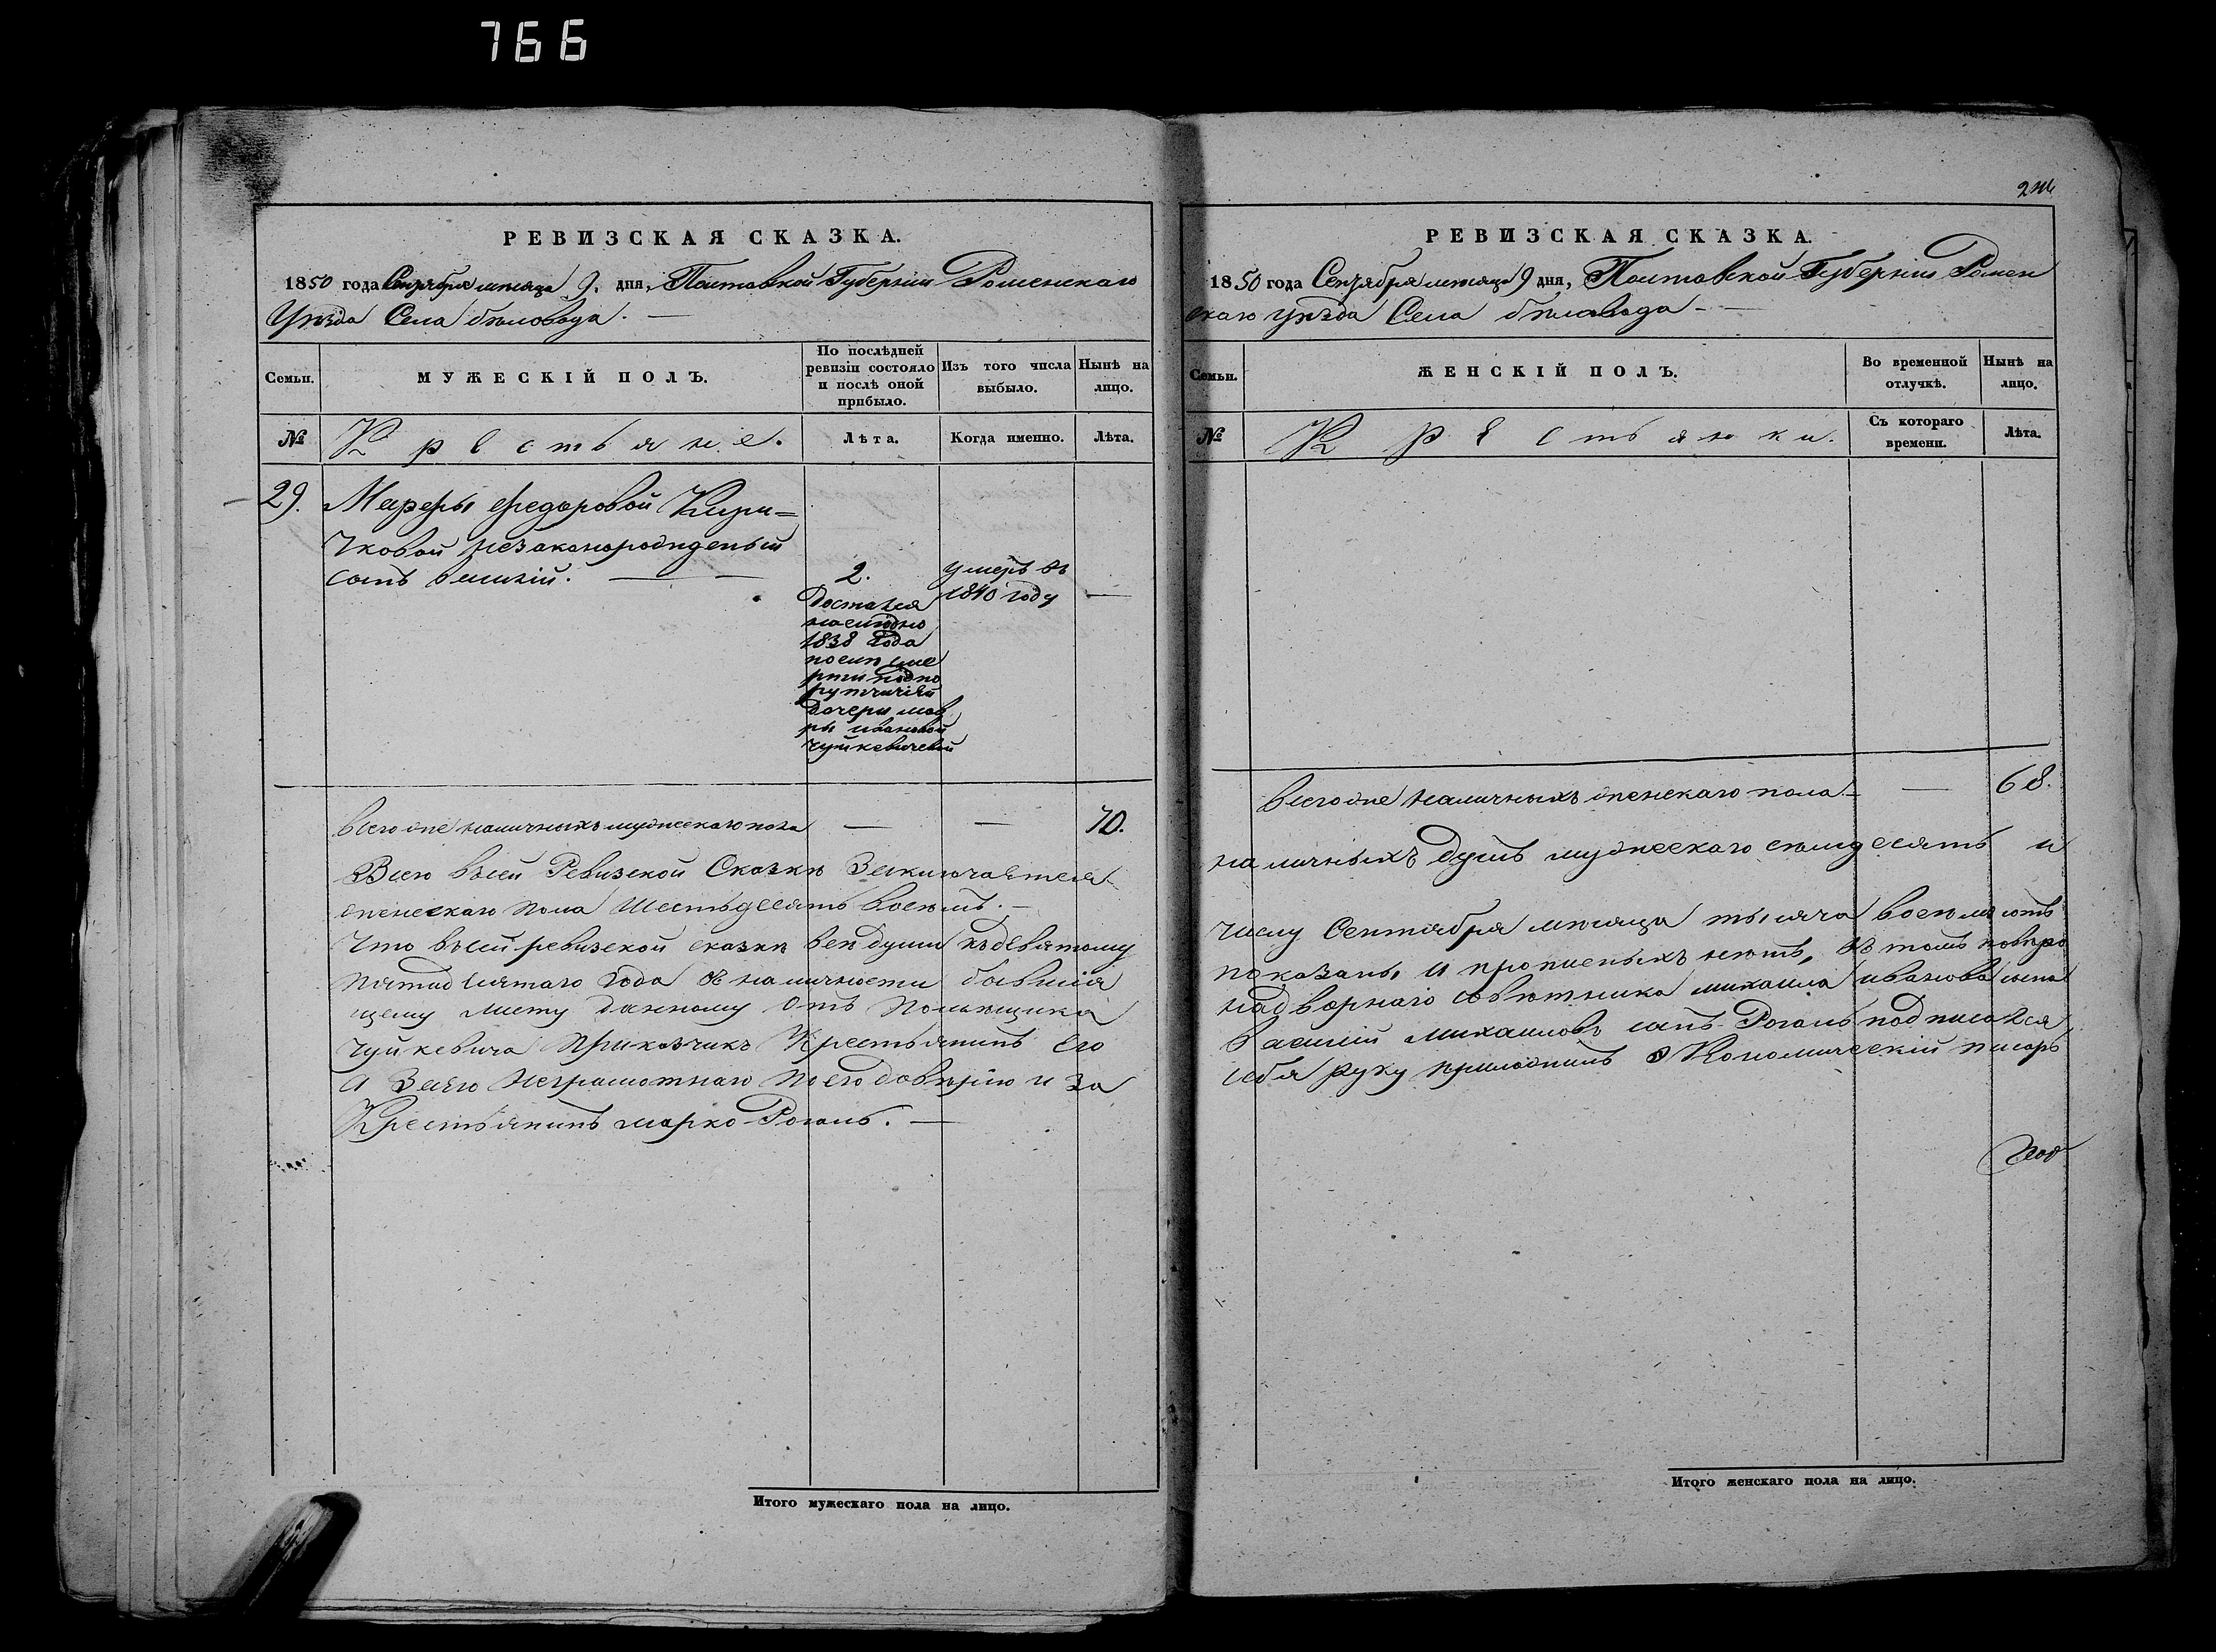 766
РЕВИЗСКАЯ СКАЗКА.
1850 года Сентября месяца 9. дня, Полтавской Губерніи Роменскаго
Уѣзда Села бѣловода.
Семьи.
МУЖЕСКІЙ ПОЛЪ.
По послѣдней ревизіи состояло и послѣ оной прибыло.
Изъ того числа выбыло.
Нынѣ на лицо.
№
Крестьяне.
Лѣта.
Когда именно.
Лѣта.
29. Марфы Федоровой Кири=
чковой незаконорожденый
сынъ 2. умеръ въ
1840 году
Достался
1838 года
посмѣ сме
рти подпо
рутчичѣй
дочери мав
ры ивановой
чуйкевичевой
всего же наличныхъ мужескаго пола — — 70.
Всего въсей Ревизской Сказкѣ Заключается
женскаго пола Шестьдесятъ восемъ. —
Что въсей ревизской сказкѣ всѣ души къ девятому
пятидесятаго года въ наличности бывшія
щему листу данному Отъ Помѣщика
чуйкевича Приказчикъ Крестьянинъ Его
А Зсего Неграмотнаго по его довѣрію и за
Крестьянинъ марко Рогаль. —
Итого мужескаго пола на лицо.
РЕВИЗСКАЯ СКАЗКА.
1850 года Сентября месяца 9 дня, Полтавской Губерніи Ромен
скаго уѣзда Села бѣловода
Семьи.
ЖЕНСКІЙ ПОЛЪ.
Во временной отлучкѣ.
Нынѣ на лицо.
№
Крестьянки.
Съ котораго времени.
Лѣта.
всего же наличныхъ женскаго пола — — 68.
наличныхъ душъ мужескаго семдесятъ и
числу Сентября месяца тысяча восемъ сотъ
показаны и прописныхъ нетъ, въ томъ повѣрю
надворнаго совѣтника михаила иванова сына
василій михаиловъ сынъ Рогаль подписался
себя руку приложилъ Экономическій писарь
Итого женскаго пола на лицо.